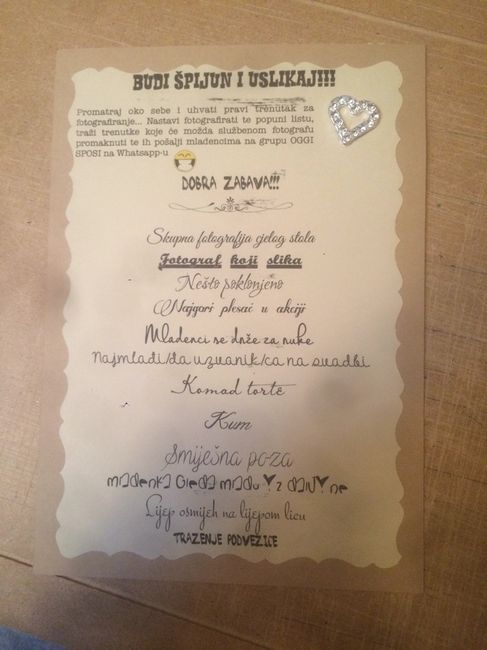 BUDI ŠPIJUN I USLIKAJ!!!
Promatraj oko sebe i uhvati pravi trenutak za
fotografiranje... Nastavi fotografirati te popuni listu,
traži trenutke koje će možda službenom fotografu
promaknuti te ih pošalji mladencima na grupu OGGI
SPOSI na Whatsapp-u
DOBRA ZABAVA!!!
Skupna fotografija cjelog stola
Fotograf koji slika
Nešto poklonjeno
Najgori plesač u akciji
Mladenci se drže za ruke
Najmlađi/đa uzvanik/ca na svadbi
Komad torte
Kum
Smiješna poza
mladenka gleda mladoY z daljYne
Lijep osmijeh na lijepom licu
TRAZENJE PODVEZICE